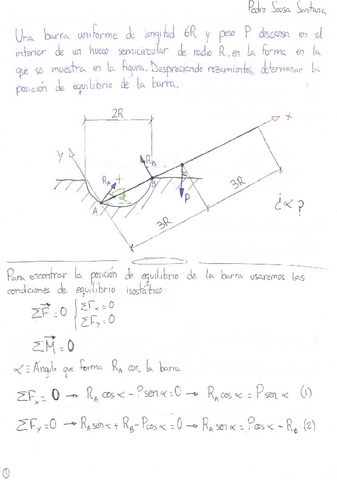 Pedro Sousa Santana
Una barra uniforme de longitud 6R y peso P descansa en el
interior de un hueco semicircular de radio R, en la forma en la
que se muestra en la figura. Despreciando rozamientos, determinar la
posición de equilibrio de la barra.
2R
x
y
R_A
R_B
α
A
B
P
3R
3R
¿α?
Para encontrar la posición de equilibrio de la barra usaremos las
condiciones de equilibrio isostático:
ΣF=0 { ΣFx=0
ΣFy=0
ΣM=0
α ≡ Angulo que forma R_A con la barra
ΣFx=0 → R_A cos α - P sen α=0 → R_A cos α = P sen α (1)
ΣFy=0 → R_A sen α + R_B - P cos α =0 → R_A sen α = P cos α - R_B (2)
1